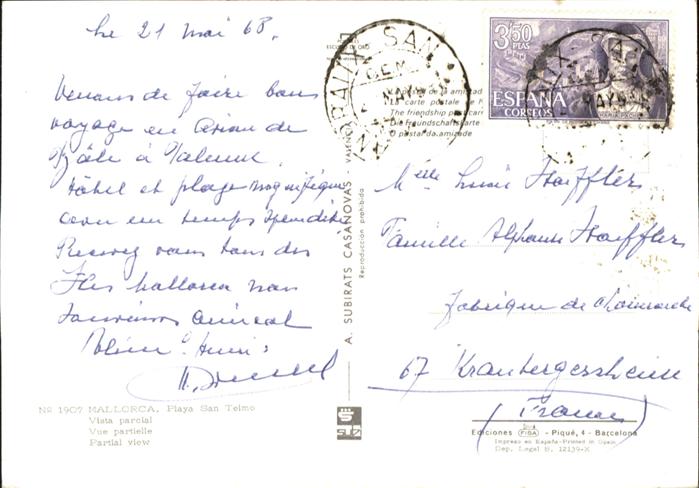 Le 21 mai 68.
Venons de faire bon
voyage en avion de
Bâle à
Hôtel et plage magnifique
avec un temps splendide
Recevez vous tous des
Iles Mallorca nos
souvenirs amical
Henri
Nº 1907 MALLORCA. Playa San Telmo
Vista parcial
Vue partielle
Partial view
A. SUBIRATS CASANOVAS - VALENCIA
Reproducción prohibida
ESCUDO DE ORO
postal de la amistad
carte postale de
The friendship postcard
Die Freundschaftskarte
O postal da amizade
3,50
PTAS
ESPAÑA
CORREOS
Melle Haeffler
Famille Alphonse Haeffler
fabrique de choucroute
67 Krautergersheim
(France)
Ediciones FISA - Piqué, 4 - Barcelona
Impreso en España-Printed in Spain
Dep. Legal B. 12139-X